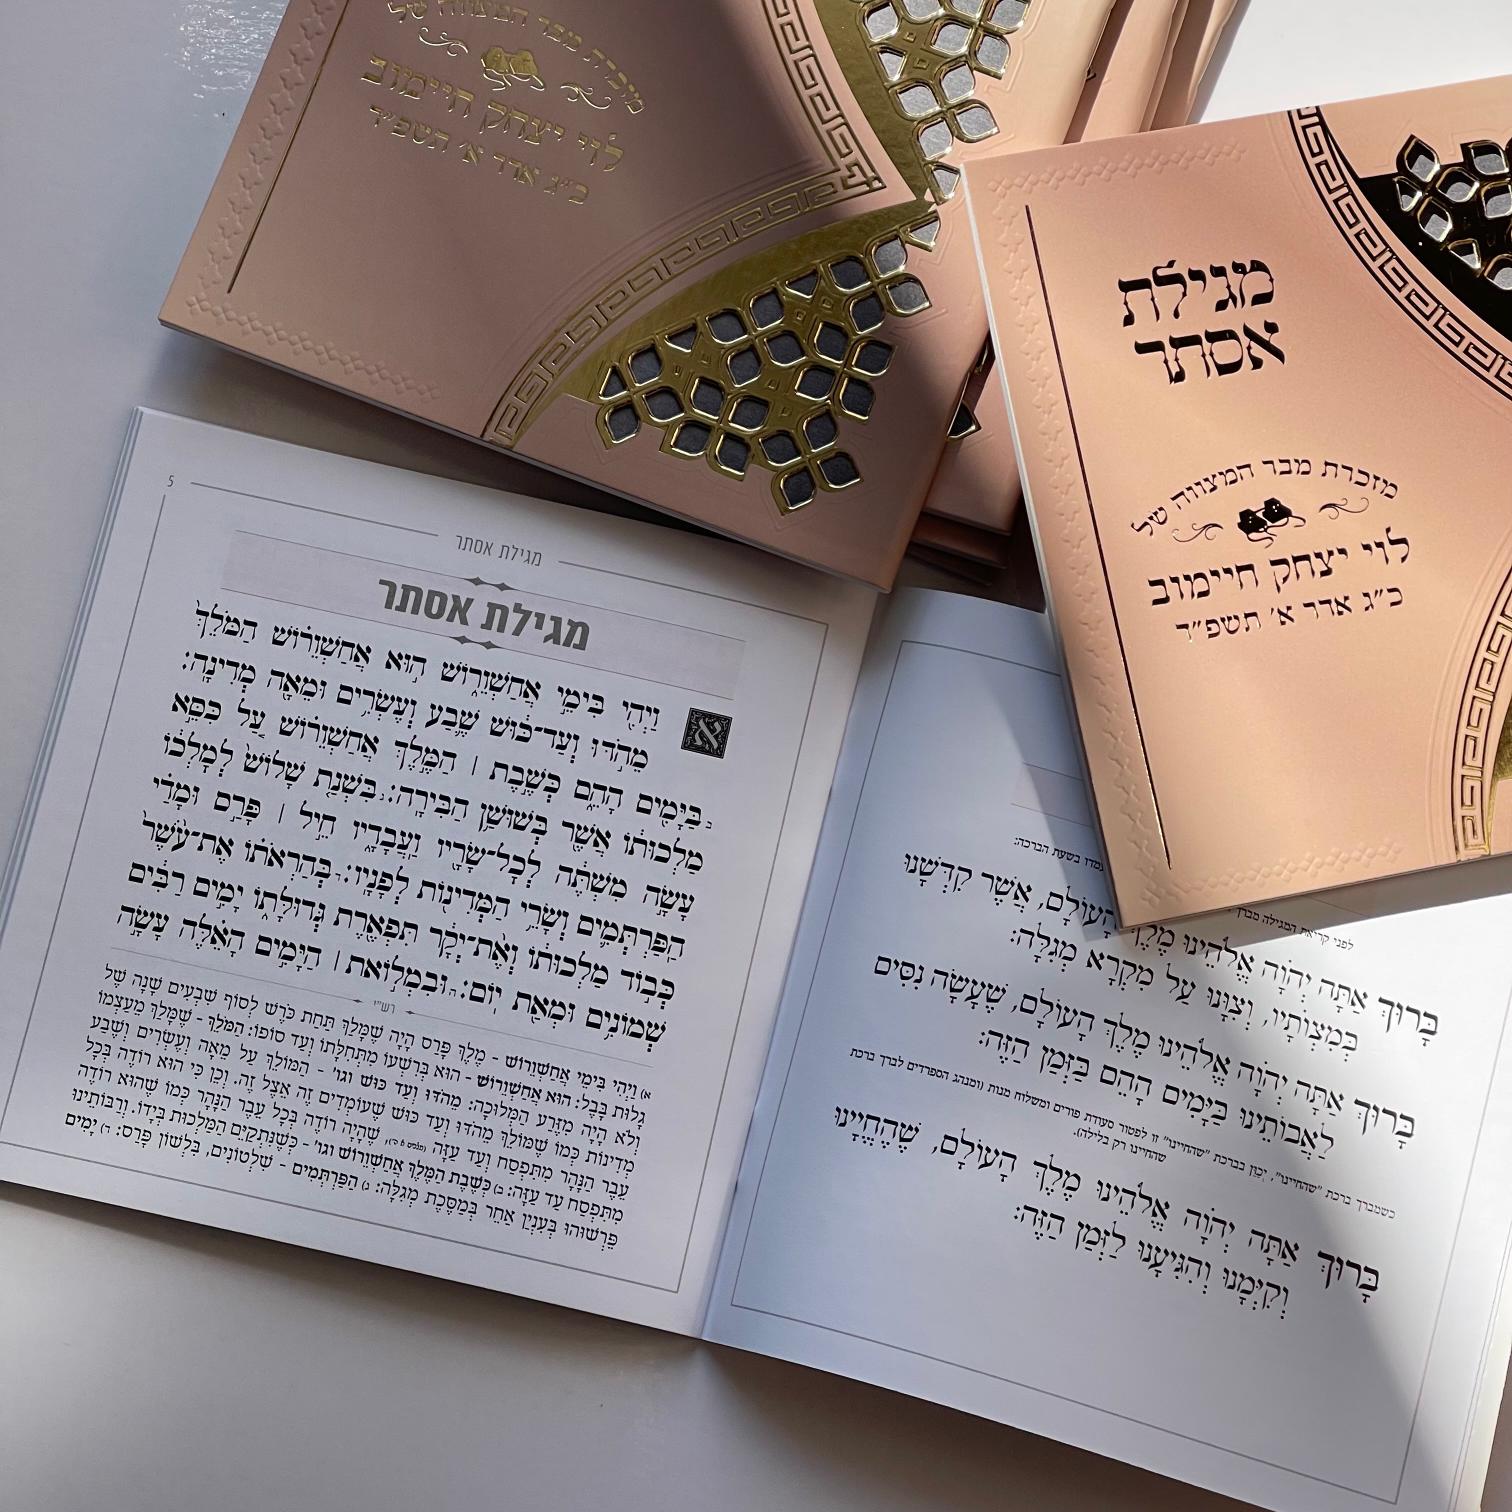 מזכרת מבר המצווה של
לוי יצחק חיימוב
כ״ג אדר א׳ תשפ״ד
מגילת
אסתר
מזכרת מבר המצווה של
לוי יצחק חיימוב
כ״ג אדר א׳ תשפ״ד
עמדו בשעת הברכה:
לפני קריאת המגילה מברך
בָּרוּךְ אַתָּה יְהֹוָה אֱלֹהֵינוּ מֶלֶךְ הָעוֹלָם, אֲשֶׁר קִדְּשָׁנוּ
בְּמִצְוֹתָיו, וְצִוָּנוּ עַל מִקְרָא מְגִלָּה:
בָּרוּךְ אַתָּה יְהֹוָה אֱלֹהֵינוּ מֶלֶךְ הָעוֹלָם, שֶׁעָשָׂה נִסִּים
לַאֲבוֹתֵינוּ בַּיָּמִים הָהֵם בַּזְּמַן הַזֶּה:
כשמברך ברכת "שהחיינו", יְכַוֵּן בברכת "שהחיינו" זו לפטור סעודת פורים ומשלוח מנות (ומנהג הספרדים לברך ברכת
שהחיינו רק בלילה).
בָּרוּךְ אַתָּה יְהֹוָה אֱלֹהֵינוּ מֶלֶךְ הָעוֹלָם, שֶׁהֶחֱיָינוּ
וְקִיְּמָנוּ וְהִגִּיעָנוּ לַזְּמַן הַזֶּה:
5
מגילת אסתר
מגילת אסתר
א
וַיְהִ֖י בִּימֵ֣י אֲחַשְׁוֵר֑וֹשׁ ה֣וּא אֲחַשְׁוֵר֗וֹשׁ הַמֹּלֵךְ֙
מֵהֹ֣דּוּ וְעַד־כּ֔וּשׁ שֶׁ֛בַע וְעֶשְׂרִ֥ים וּמֵאָ֖ה מְדִינָֽה:
ב בַּיָּמִ֖ים הָהֵ֑ם כְּשֶׁ֣בֶת | הַמֶּ֣לֶךְ אֲחַשְׁוֵר֗וֹשׁ עַ֚ל כִּסֵּ֣א
מַלְכוּת֔וֹ אֲשֶׁ֖ר בְּשׁוּשַׁ֥ן הַבִּירָֽה: ג בִּשְׁנַ֤ת שָׁלוֹשׁ֙ לְמָלְכ֔וֹ
עָשָׂ֣ה מִשְׁתֶּ֔ה לְכׇל־שָׂרָ֖יו וַעֲבָדָ֑יו חֵ֣יל | פָּרַ֣ס וּמָדַ֗י
הַֽפַּרְתְּמִ֛ים וְשָׂרֵ֥י הַמְּדִינ֖וֹת לְפָנָֽיו: ד בְּהַרְאֹת֗וֹ אֶת־עֹ֙שֶׁר֙
כְּב֣וֹד מַלְכוּת֔וֹ וְאֶ֨ת־יְקָ֔ר תִּפְאֶ֖רֶת גְּדוּלָּת֑וֹ יָמִ֣ים רַבִּ֔ים
שְׁמוֹנִ֥ים וּמְאַ֖ת יֽוֹם: ה וּבִמְל֣וֹאת | הַיָּמִ֣ים הָאֵ֗לֶּה עָשָׂ֣ה
רש"י
א) וַיְהִי בִּימֵי אֲחַשְׁוֵרוֹשׁ - מֶלֶךְ פָּרַס הָיָה שֶׁמָּלַךְ תַּחַת כֹּרֶשׁ לְסוֹף שִׁבְעִים שָׁנָה שֶׁל
גָּלוּת בָּבֶל: הוּא אֲחַשְׁוֵרוֹשׁ - הוּא בְּרִשְׁעוֹ מִתְּחִלָּתוֹ וְעַד סוֹפוֹ: הַמֹּלֵךְ - שֶׁמָּלַךְ מֵעַצְמוֹ
וְלֹא הָיָה מִזֶּרַע הַמְּלוּכָה: מֵהֹדּוּ וְעַד כּוּשׁ וגו' - הַמּוֹלֵךְ עַל מֵאָה וְעֶשְׂרִים וְשֶׁבַע
מְדִינוֹת כְּמוֹ שֶׁמּוֹלֵךְ מֵהֹדּוּ וְעַד כּוּשׁ שֶׁעוֹמְדִים זֶה אֵצֶל זֶה. וְכֵן כִּי הוּא רוֹדֶה בְּכׇל
עֵבֶר הַנָּהָר מִתִּפְסַח וְעַד עַזָּה (מלכים א ה'), שֶׁהָיָה רוֹדֶה בְּכָל עֵבֶר הַנָּהָר כְּמוֹ שֶׁהוּא רוֹדֶה
מִתִּפְסַח עַד עַזָּה: ב) כְּשֶׁבֶת הַמֶּלֶךְ אֲחַשְׁוֵרוֹשׁ וגו' - כְּשֶׁנִּתְקַיֵּם הַמַּלְכוּת בְּיָדוֹ. וְרַבּוֹתֵינוּ
פֵּרְשׁוּהוּ בְּעִנְיַן אַחֵר בְּמַסֶּכֶת מְגִלָּה: ג) הַפַּרְתְּמִים - שִׁלְטוֹנִים, בִּלְשׁוֹן פָּרַס: ד) יָמִים